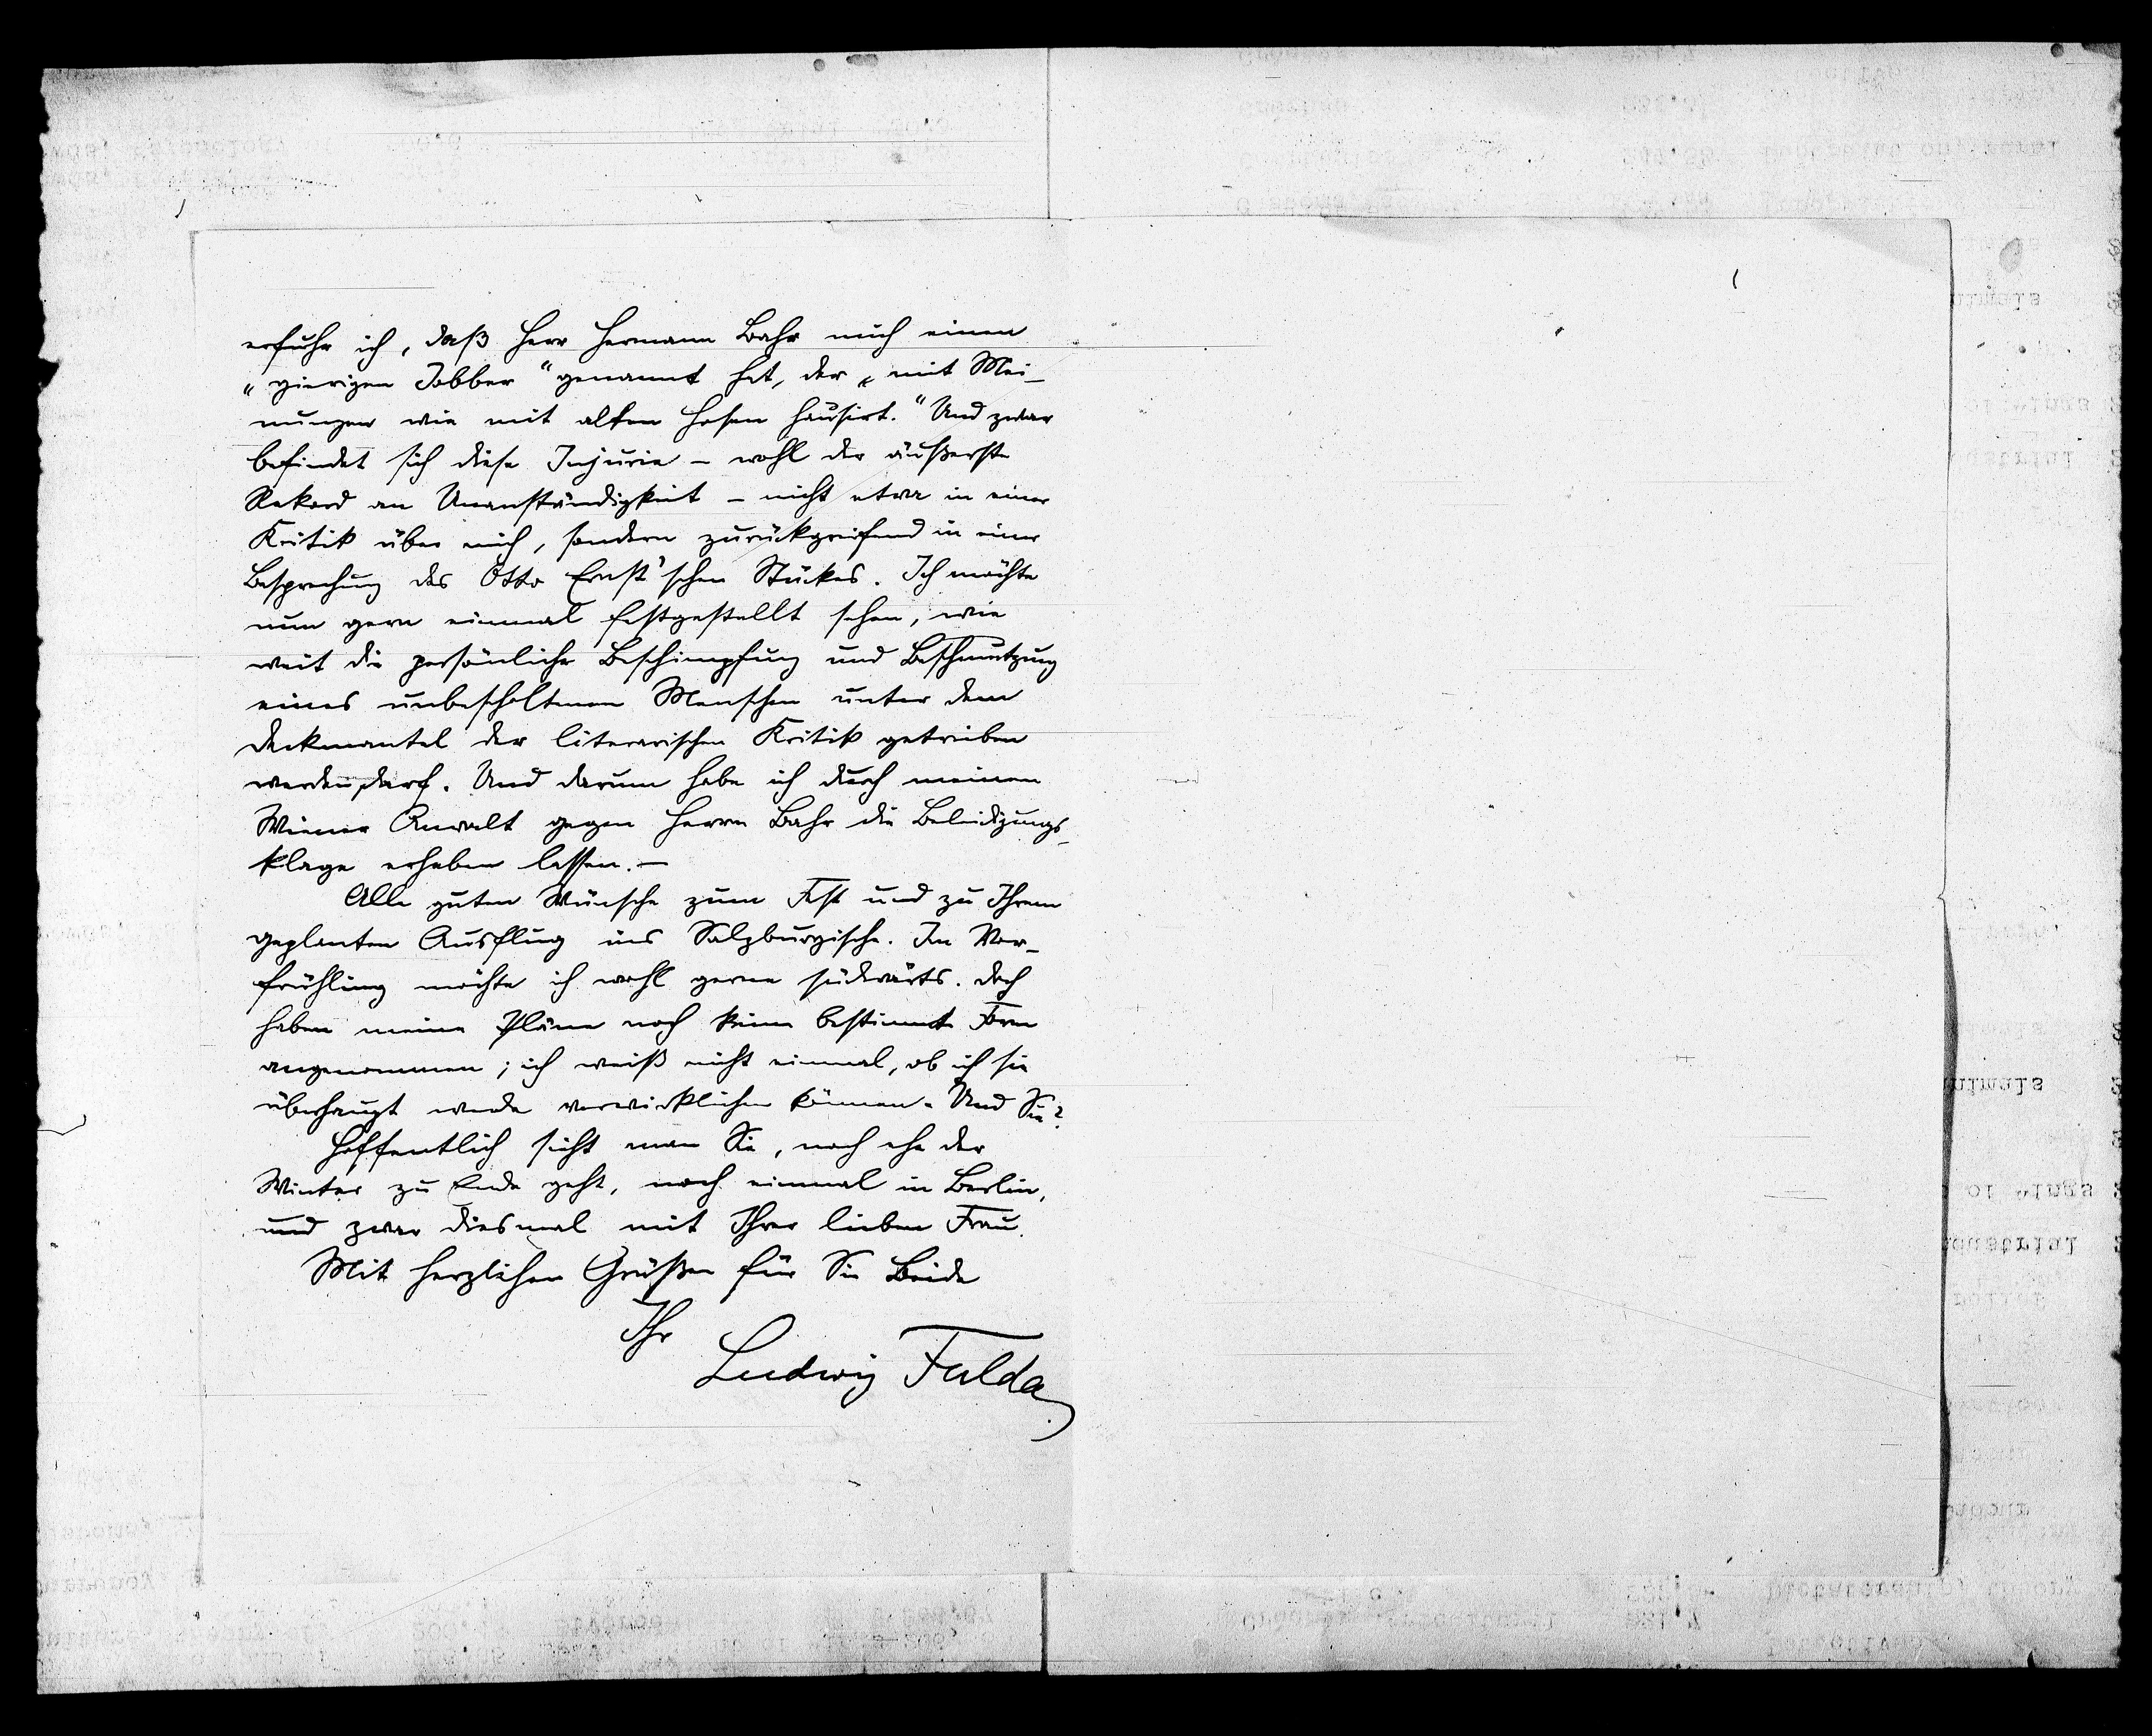 erfuhr ich, daß Herr Hermann Bahr mich einen
„gierigen Jobber“ genannt hat, der „mit Mei-
nungen wie mit alten Hosen hausirt.“ Und zwar
befindet sich diese Injurie – wohl der äußerste
Rekord an Unanständigkeit – nicht etwa in einer
Kritik über mich, sondern zurückgreifend in einer
Besprechung des Otto Ernst'schen Stückes. Ich möchte
nun gern einmal festgestellt sehen, wie
weit die persönliche Beschimpfung und Beschmutzung
eines unbescholtenen Menschen unter dem
Deckmantel der literarischen Kritik getrieben
werden darf. Und darum habe ich durch meinen
Wiener Anwalt gegen Herrn Bahr die Beleidigungs-
klage erheben lassen. –
Alle guten Wünsche zum Fest und zu Ihrem
geplanten Ausflug ins Salzburgische. Im Vor-
frühling möchte ich wohl gerne südwärts. Doch
haben meine Pläne noch keine bestimmte Form
angenommen; ich weiß nicht einmal, ob ich sie
überhaupt werde verwirklichen können. Und Sie?
Hoffentlich sieht man Sie, noch ehe der
Winter zu Ende geht, noch einmal in Berlin,
und zwar diesmal mit Ihrer lieben Frau.
Mit herzlichen Grüßen für Sie Beide
Ihr
Ludwig Fulda